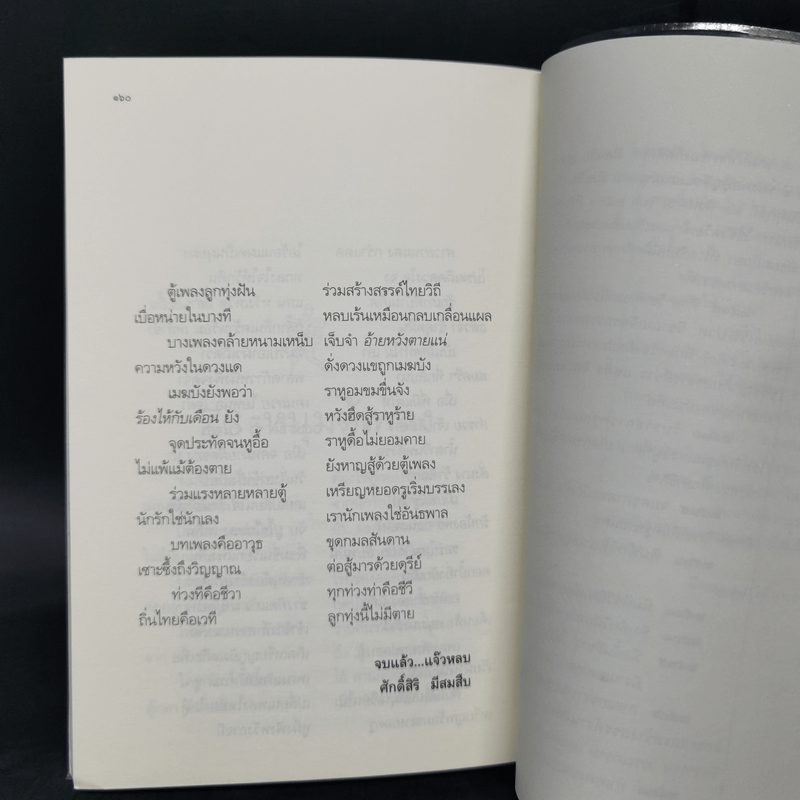 ๑๖๐
ตู้เพลงลูกทุ่งฝัน ร่วมสร้างสรรค์ไทยวิถี
เบื่อหน่ายในบางที หลบเร้นเหมือนกลบเกลื่อนแผล
บางเพลงคล้ายหนามเหน็บ เจ็บจำ อ้ายหวังตายแน่
ความหวังในดวงแด ดั่งดวงแขถูกเมฆบัง
เมฆบังยังพอว่า ราหูอมชมชื่นจัง
ร้องไห้กับเดือน ยัง หวังฮึดสู้ราหูร้าย
จุดประทัดจนหูอื้อ ราหูดื้อไม่ยอมคาย
ไม่แพ้แม้ต้องตาย ยังหาญสู้ด้วยตู้เพลง
ร่วมแรงหลายหลายตู้ เหรียญหยอดรูเริ่มบรรเลง
นักรักใช่นักเลง เรานักเพลงใช่อันธพาล
บทเพลงคืออาวุธ ขุดกมลสันดาน
เซาะซึ้งถึงวิญญาณ ต่อสู้มารด้วยดุรีย์
ท่วงทีคือชีวา ทุกท่วงท่าคือชีวี
ถิ่นไทยคือเวที ลูกทุ่งนี้ไม่มีตาย
จบแล้ว...แจ๊วหลบ
ศักดิ์สิริ มีสมสืบ